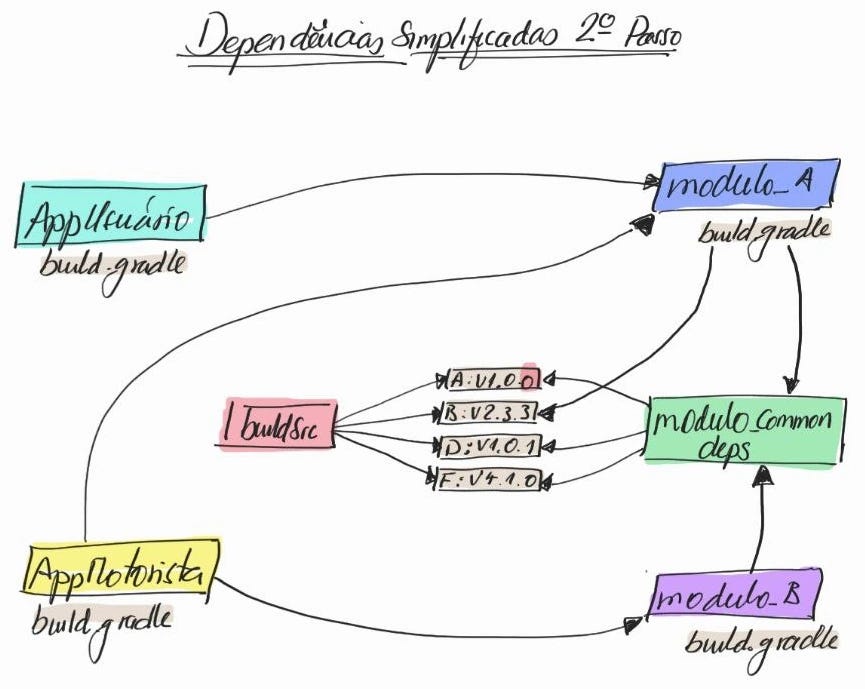 Dependências Simplificadas 2º Passo
modulo_A
build.gradle
AppUsuário
build.gradle
A:V1.0.0
B:V2.3.3
D:V1.0.1
F:V4.1.0
buildSrc
modulo_common
deps
AppMotorista
build.gradle
modulo_B
build.gradle